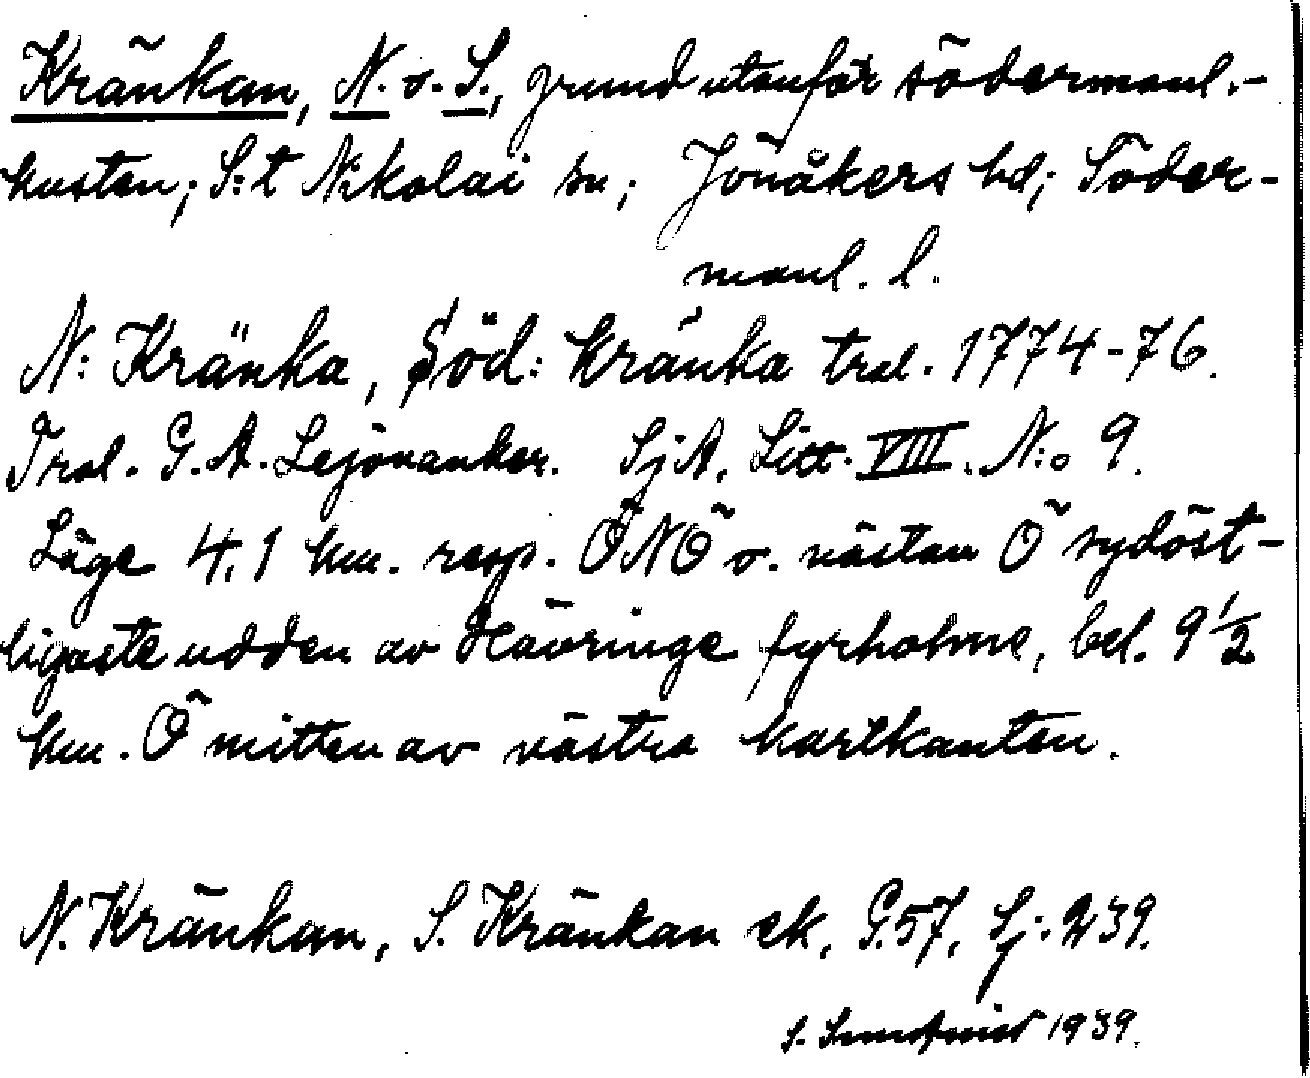 Kränkan, N. o. S., grund utanför södermanl.-
kusten; S:t Nikolai sn; Jönåkers hd; Söder-
manl. l.
N: Kränka, Söd: Kränka trol. 1774-76.
Trol. G. A. Lejonanker. SjA, Litt. VIII. N:o 9.
Läge 4,1 km. resp. ÖNÖ o. nästan Ö sydöst-
ligaste udden av Hävringe fyrholme, bel. 9 1/2
km. Ö mitten av västra kartkanten.
N. Kränkan, S. Kränkan ek. G.57, Sj: 239.
S. Sundqvist 1939.